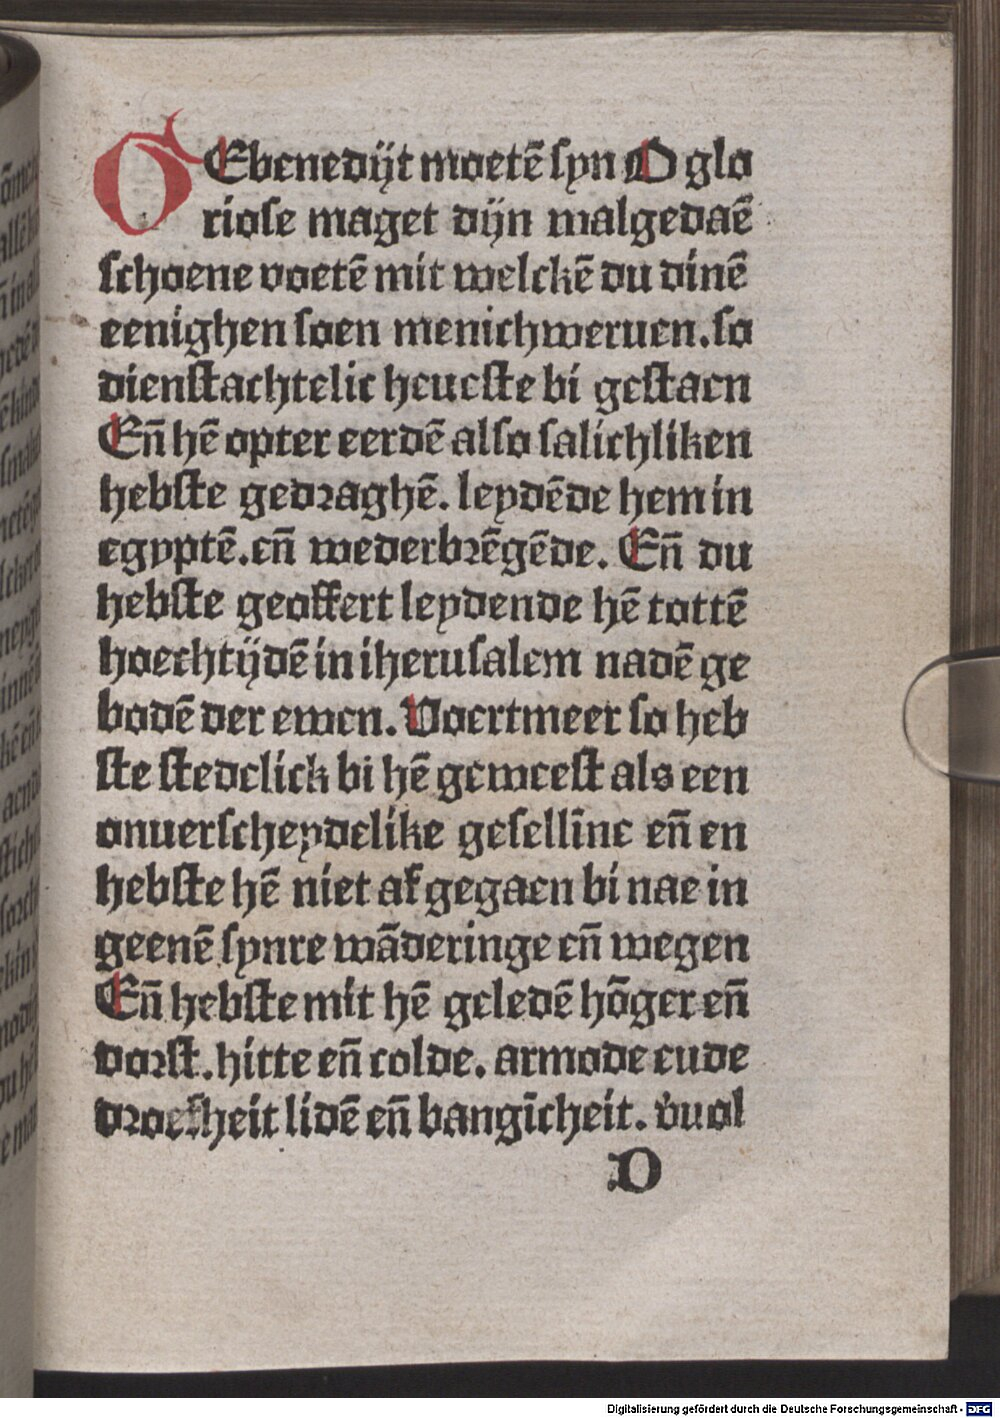 GEbenedijt moetē syn O glo
riose maget dijn malgedaē
schoene voetē mit welckē du dinē
eenighen soen menichweruen. so
dienstachtelic heueste bi gestaen
Eñ hē opter eerdē also salichliken
hebste gedraghē. leydēde hem in
egyptē. eñ wederbrēgēde. Eñ du
hebste geoffert leydende hē tottē
hoechtijdē in iherusalem nadē ge
bodē der ewen. Voertmeer so heb
ste stedelick bi hē geweest als een
onuerscheydelike gesellīne eñ en
hebste hē niet af gegaen bi nae in
geenē synre wāderinge eñ wegen
Eñ hebste mit hē geledē hōger eñ
dorst. hitte eñ colde. armode eude
droefheit lidē eñ bangīcheit. vuol
D
Digitalisierung gefördert durch die Deutsche Forschungsgemeinschaft - DFG